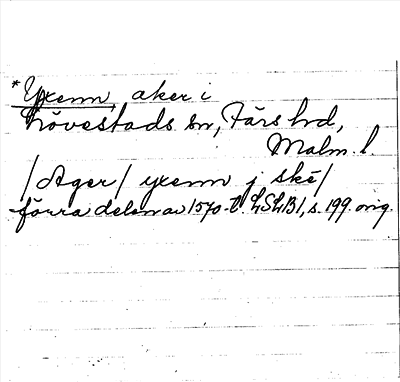 *Yxenn, aker i
Lövestads sn, Färs hd,
Malm. l
/Ager/ yxenn j ské/
förra delen av 1570-t. LSLB1, s. 199. orig.